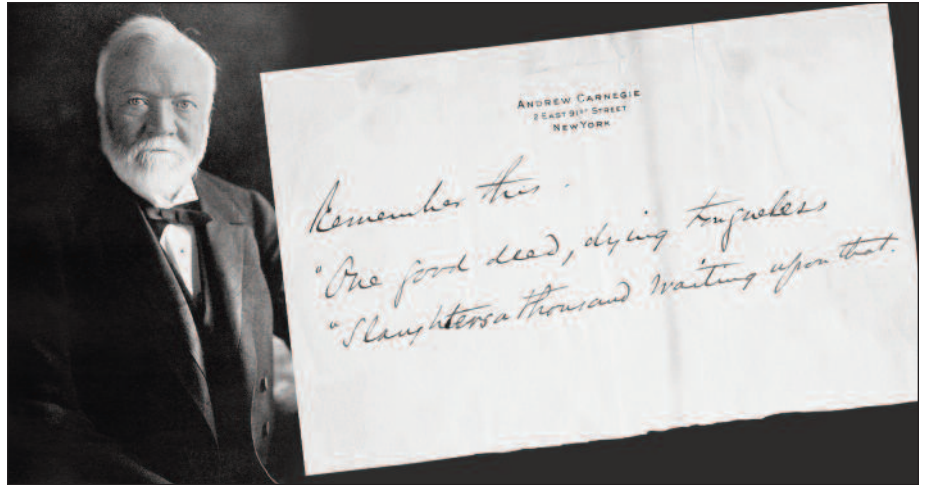 ANDREW CARNEGIE
2 EAST 91ST STREET
NEW YORK
Remember this.
"One good deed, dying tongueless
"Slaughters a thousand waiting upon that.